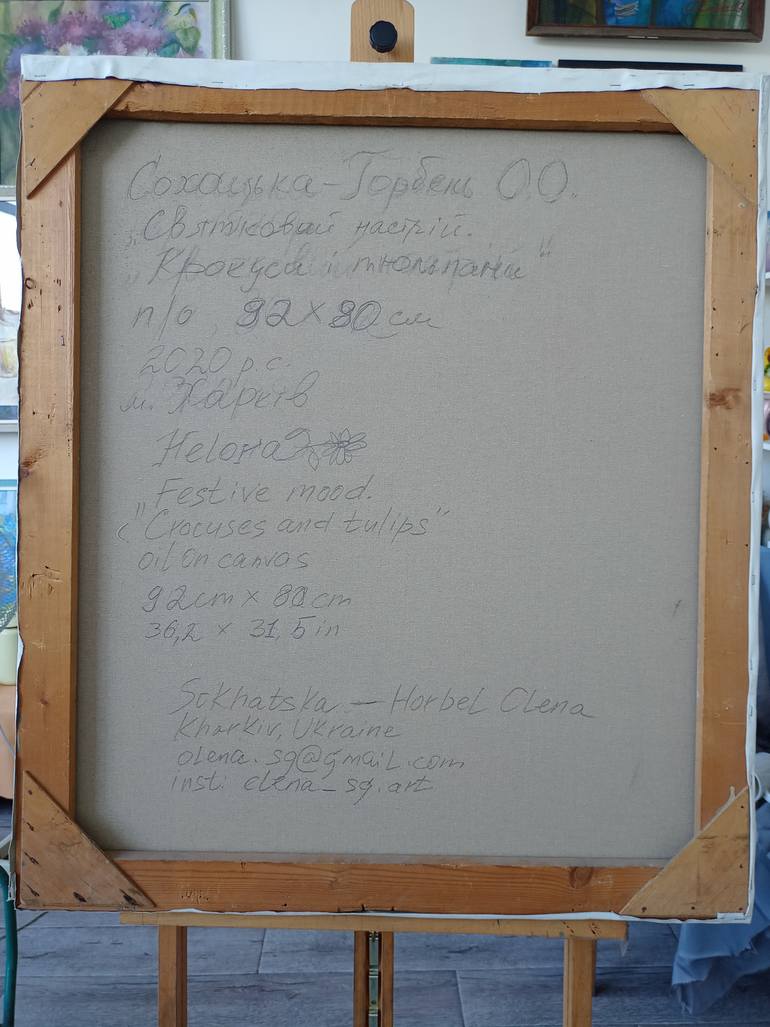 Сохацька-Горбель О.О.
„Святковий настрій.
„Крокуси і тюльпани"
п/о 92×80 см
2020 р.с.
м. Харків
"Festive mood.
"Crocuses and tulips"
oil on canvas
92cm × 80cm
36,2 × 31,5 in
Sokhatska - Horbel Olena
Kharkiv, Ukraine
olena.sg@gmail.com
inst: elena_sg.art